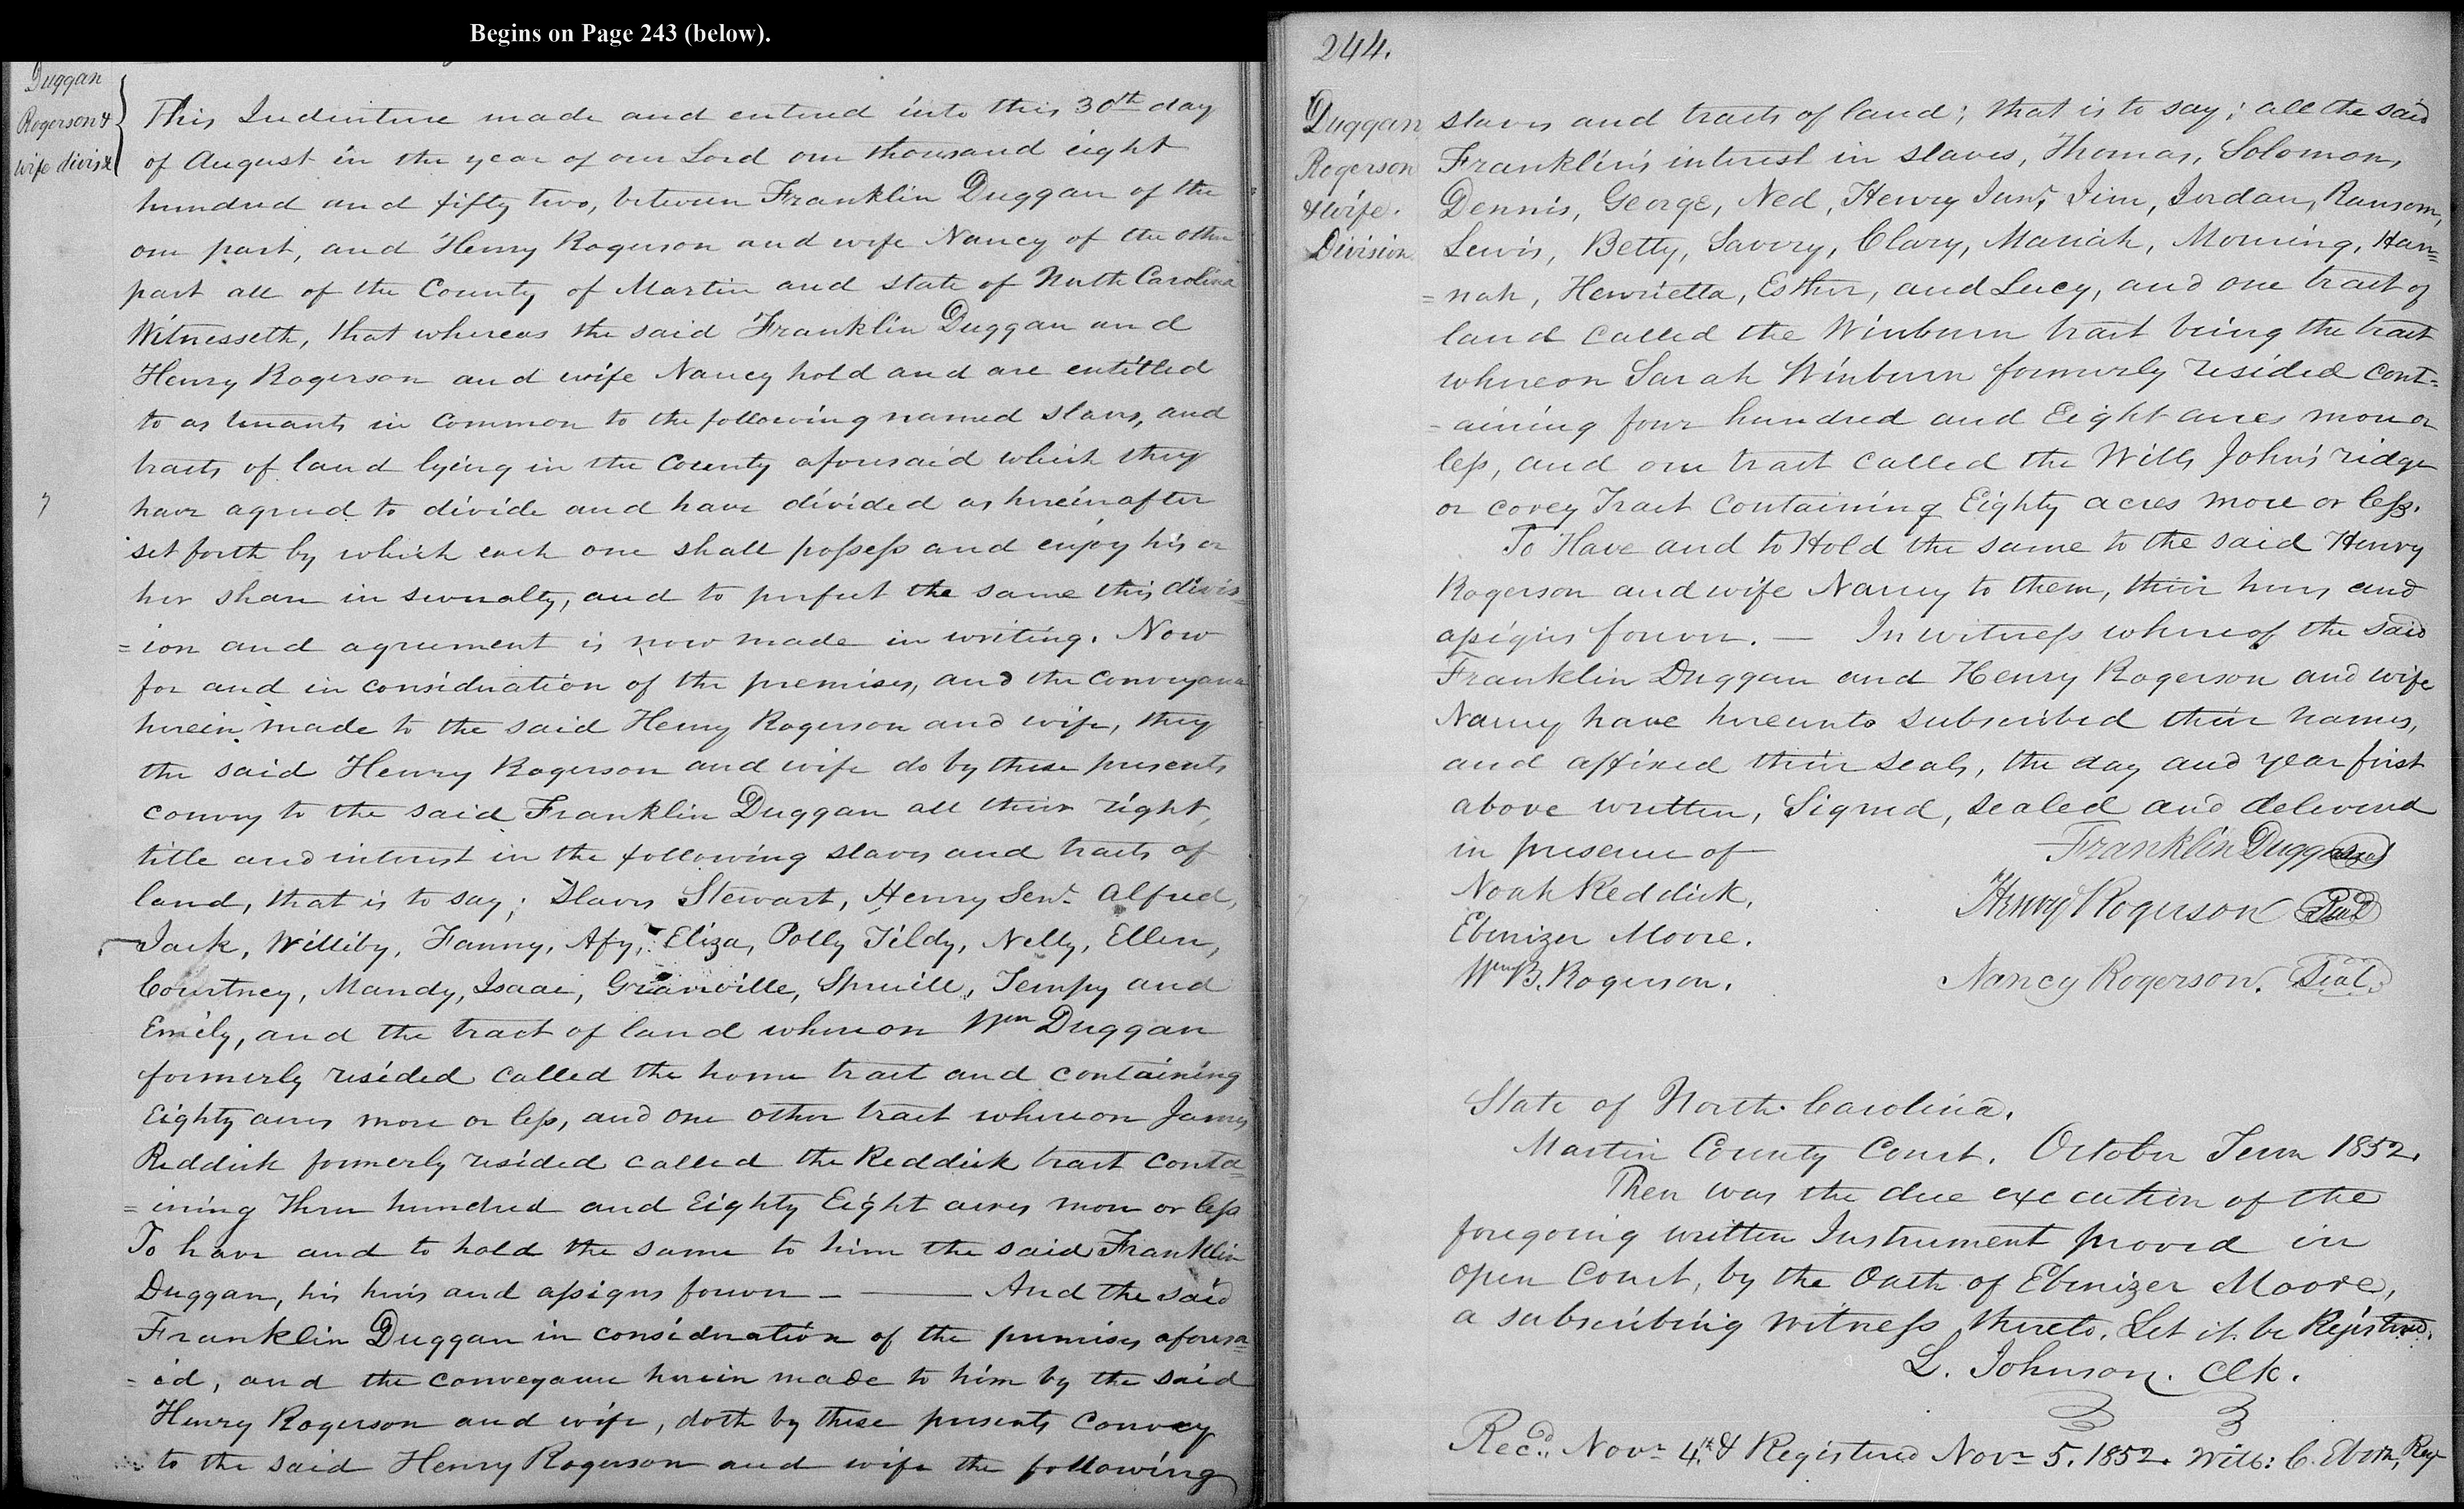 Begins on Page 243 (below).
Duggan
Rogerson &
wife divis
This Indenture made and entered into this 30th day
of August in the year of our Lord one thousand eight
hundred and fifty two, between Franklin Duggan of the
one part, and Henry Rogerson and wife Nancy of the other
part all of the County of Martin and state of North Carolina
Witnesseth, that whereas the said Franklin Duggan and
Henry Rogerson and wife Nancy hold and are entitled
to as tenants in common to the following named slaves, and
tracts of land lying in the County aforesaid which they
have agreed to divide and have divided as hereinafter
set forth by which each one shall possess and enjoy his or
her share in severalty, and to perfect the same this divis=
=ion and agreement is now made in writing. Now
for and in consideration of the premises, and the conveyance
herein made to the said Henry Rogerson and wife, they
the said Henry Rogerson and wife do by these presents
convey to the said Franklin Duggan all their right,
title and interest in the following slaves and tracts of
land, that is to say; Slaves Stewart, Henry Senr. Alfred,
Jack, Williby, Fanny, Afy, Eliza, Polly Tildy, Nelly, Ellen,
Courtney, Mandy, Isaac, Granville, Spruill, Tempy and
Emily, and the tract of land whereon Wm Duggan
formerly resided called the home tract and containing
Eighty acres more or less, and one other tract whereon James
Reddick formerly resided called the Reddick tract conta=
=ining Three hundred and Eighty Eight acres more or less
To have and to hold the same to him the said Franklin
Duggan, his heirs and assigns forever — And the said
Franklin Duggan in consideration of the premises aforesa=
=id, and the conveyance herein made to him by the said
Henry Rogerson and wife, doth by these presents convey
to the said Henry Rogerson and wife the following
244.
Duggan
Rogerson
& wife.
Division
slaves and tracts of land; that is to say; all the said
Franklin's interest in slaves, Thomas, Solomon,
Dennis, George, Ned, Henry Junr, Jim, Jordan, Ransom,
Lewis, Betty, Savory, Clary, Mariah, Mourning, Han=
=nah, Henrietta, Esther, and Lucy, and one tract of
land called the Winburn tract being the tract
whereon Sarah Winburn formerly resided cont=
=aining four hundred and Eight acres more or
less, and one tract called the Wills John's ridge
or covey Tract containing Eighty acres more or less.
To Have and to Hold the same to the said Henry
Rogerson and wife Nancy to them, their heirs and
assigns forever. — In witness whereof the said
Franklin Duggan and Henry Rogerson and wife
Nancy have hereunto subscribed their names,
and affixed their seals, the day and year first
above written, Signed, sealed and delivered
in presence of
Franklin Duggan Seal
Noah Reddick,
Henry Rogerson Seal
Ebenizer Moore.
Wm B. Rogerson.
Nancy Rogerson. Seal.
State of North Carolina.
Martin County Court. October Term 1852.
Then was the due execution of the
foregoing written Instrument proved in
open Court, by the Oath of Ebenizer Moore,
a subscribing witness thereto. Let it be Registered.
L. Johnson. Clk.
Recd. Novr 4th & Registered Novr 5. 1852. Will: C. Eborn, Reg